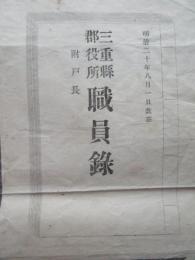 明治二十年八月一日出版
三重縣
郡役所
職員錄
附戸長